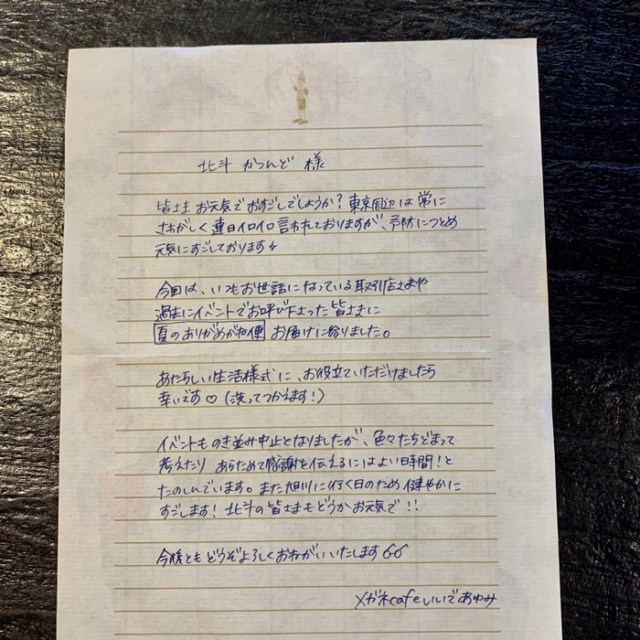 北斗 かつんど 様
皆さま お元気でおすごしでしょうか? 東京周辺は常に
さわがしく連日イロイロ言われておりますが、予防につとめ
元気にすごしております
今回は、いつもお世話になっている取引店さまや
過去にイベントでお呼び下さった皆さまに
夏のありがめがね便 お届けに参りました。
あたらしい生活様式に、お役立ていただけましたら
幸いです♡(洗ってつかえます!)
イベントものき並み中止となりましたが、色々たちどまって
考えたり あらためて感謝を伝えるにはよい時間!と
たのしんでいます。また旭川に行く日のため健やかに
すごします! 北斗の皆さまもどうかお元気で!!
今後ともどうぞよろしくおねがいいたします
メガネcafe いいであゆみ